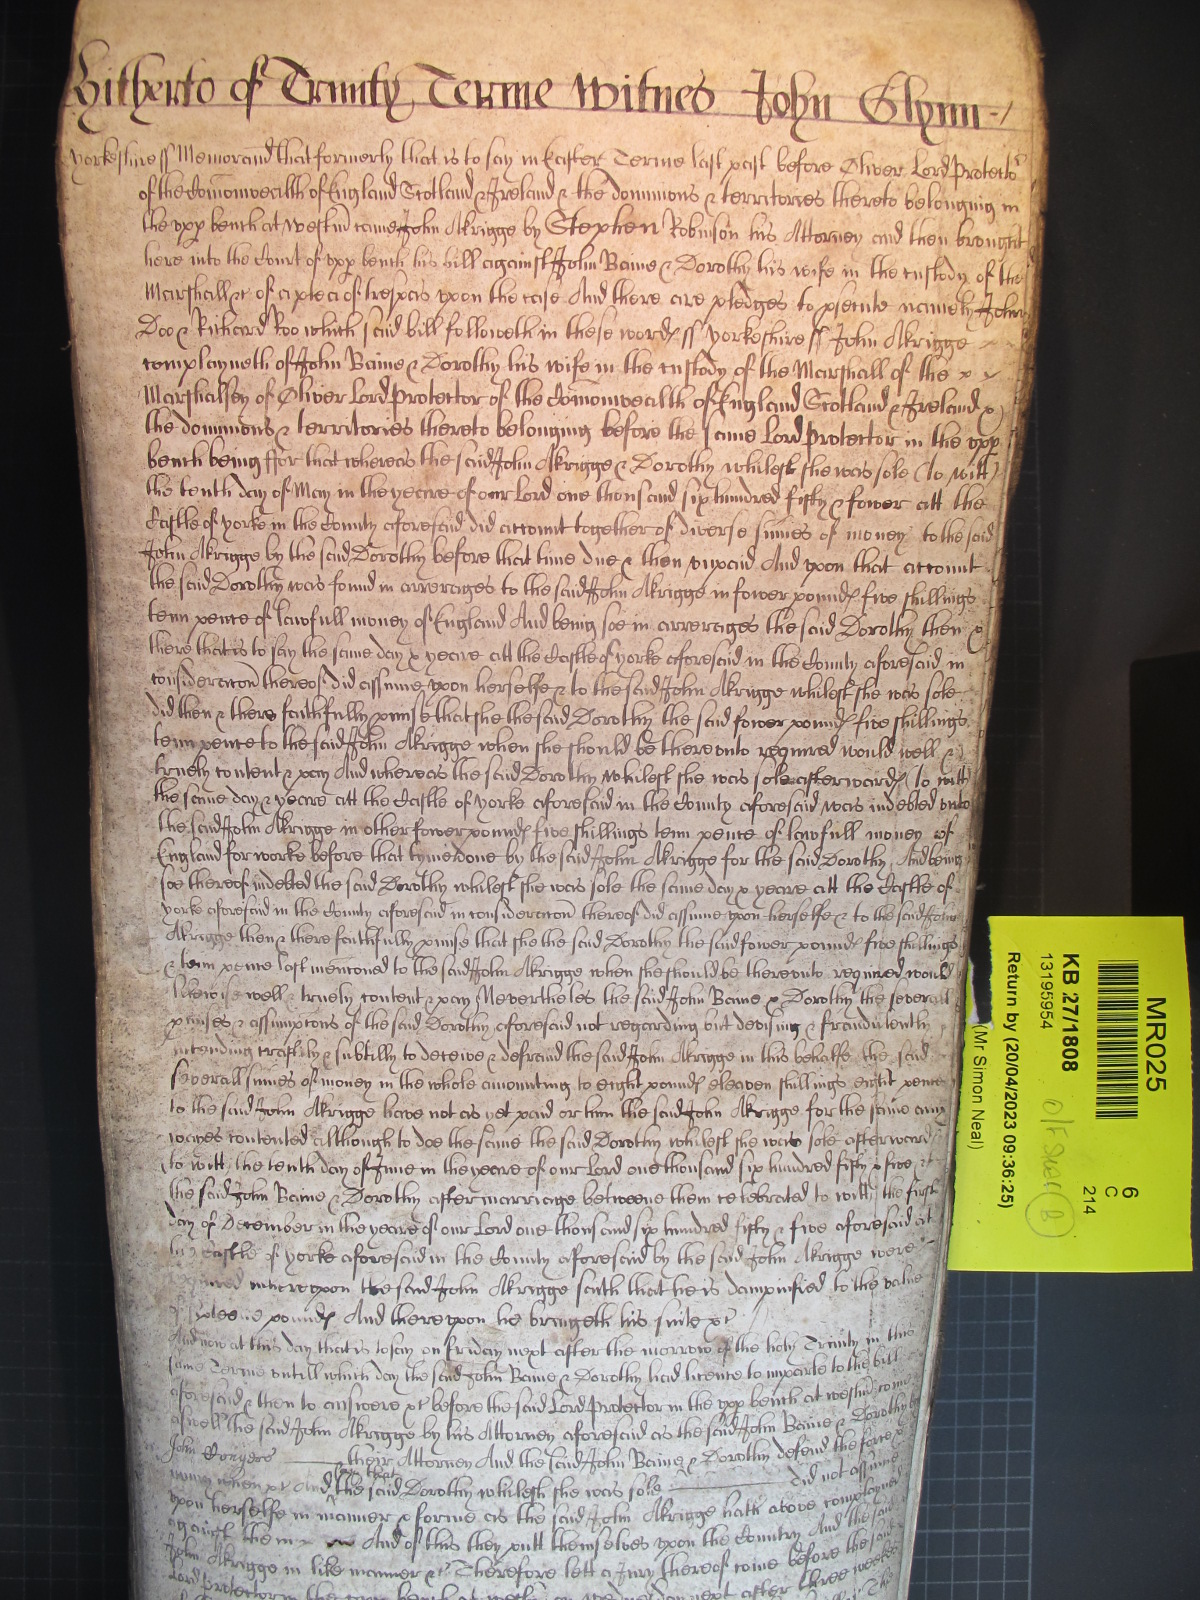 Hitherto of Trinity Terme Witnes John Glynn
Yorkeshire ss Memorand that formerly that is to say in Easter Terme last past before Oliver Lord Protector
of the Comonwealth of England Scotland & Ireland & the dominions & territories thereto belonging in
the upp bench at Westm came John Akrigge by Stephen Robinson his Attorney and then brought
here into the Court of upp bench his bill against John Baine & Dorothy his wife in the custody of the
Marshall &c of a plea of trespas upon the case And there are pledges to psecute namely John
Doo & Richard Roo which said bill followeth in these words ss Yorkeshire ss John Akrigge
complayneth of John Baine & Dorothy his wife in the custody of the Marshall of the
Marshalsey of Oliver Lord Protector of the Comonwealth of England Scotland & Ireland &
the dominions & territories thereto belonging before the same Lord Protector in the upp
bench being ffor that whereas the said John Akrigge & Dorothy whilest she was sole (to witt)
the tenth day of May in the yeare of our Lord one thousand six hundred fifty & fower att the
Castle of Yorke in the County aforesaid did accomt together of diverse sumes of money to the said
John Akrigge by the said Dorothy before that time due & then unpaid And upon that accomt
the said Dorothy was found in arrerages to the said John Akrigge in fower pounds five shillings
tenn pence of lawfull money of England And being soe in arrerages the said Dorothy then &
there that is to say the same day & yeare att the Castle of Yorke aforesaid in the County aforesaid in
consideracon thereof did assume upon herselfe & to the said John Akrigge whilest she was sole
did then & there faithfully pmise that she the said Dorothy the said fower pounds five shillings
tenn pence to the said John Akrigge when she should be thereunto required would well &
truely content & pay And whereas the said Dorothy whilest she was sole afterwards (to witt)
the same day & yeare att the Castle of Yorke aforesaid in the County aforesaid was indebted unto
the said John Akrigge in other fower pounds five shillings tenn pence of lawfull money of
England for worke before that tyme done by the said John Akrigge for the said Dorothy And being
soe thereof indebted the said Dorothy whilest she was sole the same day & yeare att the Castle of
Yorke aforesaid in the County aforesaid in consideracon thereof did assume upon herselfe & to the said John
Akrigge then & there faithfully pmise that she the said Dorothy the said fower pounds five shillings
& tenn pence last mentioned to the said John Akrigge when she should be thereunto required would
likewise well & truely content & pay Neverthelesse the said John Baine & Dorothy the severall
pmises & assumptons of the said Dorothy aforesaid not regarding but devising & fraudulently
intending craftily & subtilly to deceive & defraud the said John Akrigge in this behalfe the said
severall sumes of money in the whole amounting to eight pounds eleaven shillings eight pence
to the said John Akrigge have not as yet paid or him the said John Akrigge for the same any
wayes contented although to doe the same the said Dorothy whilest she was sole afterwards
(to witt) the tenth day of June in the yeare of our Lord one thousand six hundred fifty & five &
the said John Baine & Dorothy after marriage betweene them celebrated to witt the first
day of December in the yeare of our Lord one thousand six hundred fifty & five aforesaid at
the Castle of Yorke aforesaid in the County aforesaid by the said John Akrigge were
required whereupon the said John Akrigge saith that he is dampnified to the value
of pounds And thereupon he bringeth his suite &c
And now at this day that is to say on Friday next after the morrow of the holy Trinity in this
same Terme untill which day the said John Baine & Dorothy had licence to imparle to the bill
aforesaid & then to answere &c before the said Lord Protector in the upp bench at Westm come
aswell the said John Akrigge by his Attorney aforesaid as the said John Baine & Dorothy by
John Conyers their Attorney And the said John Baine & Dorothy defend the force &
wrong when &c And say that the said Dorothy whilest she was sole did not assume
upon herselfe in manner & forme as the said John Akrigge hath above complayned
against them And of this they putt themselves upon the Country And the said
John Akrigge in like manner &c Therefore lett a Jury thereof come before the said
Lord Protector in the upp bench at Westm on next after three weekes
MR025
6
C
214
KB 27/1808
13195954
O/F Shelf (B)
Return by (20/04/2023 09:36:25)
(Mr Simon Neal)